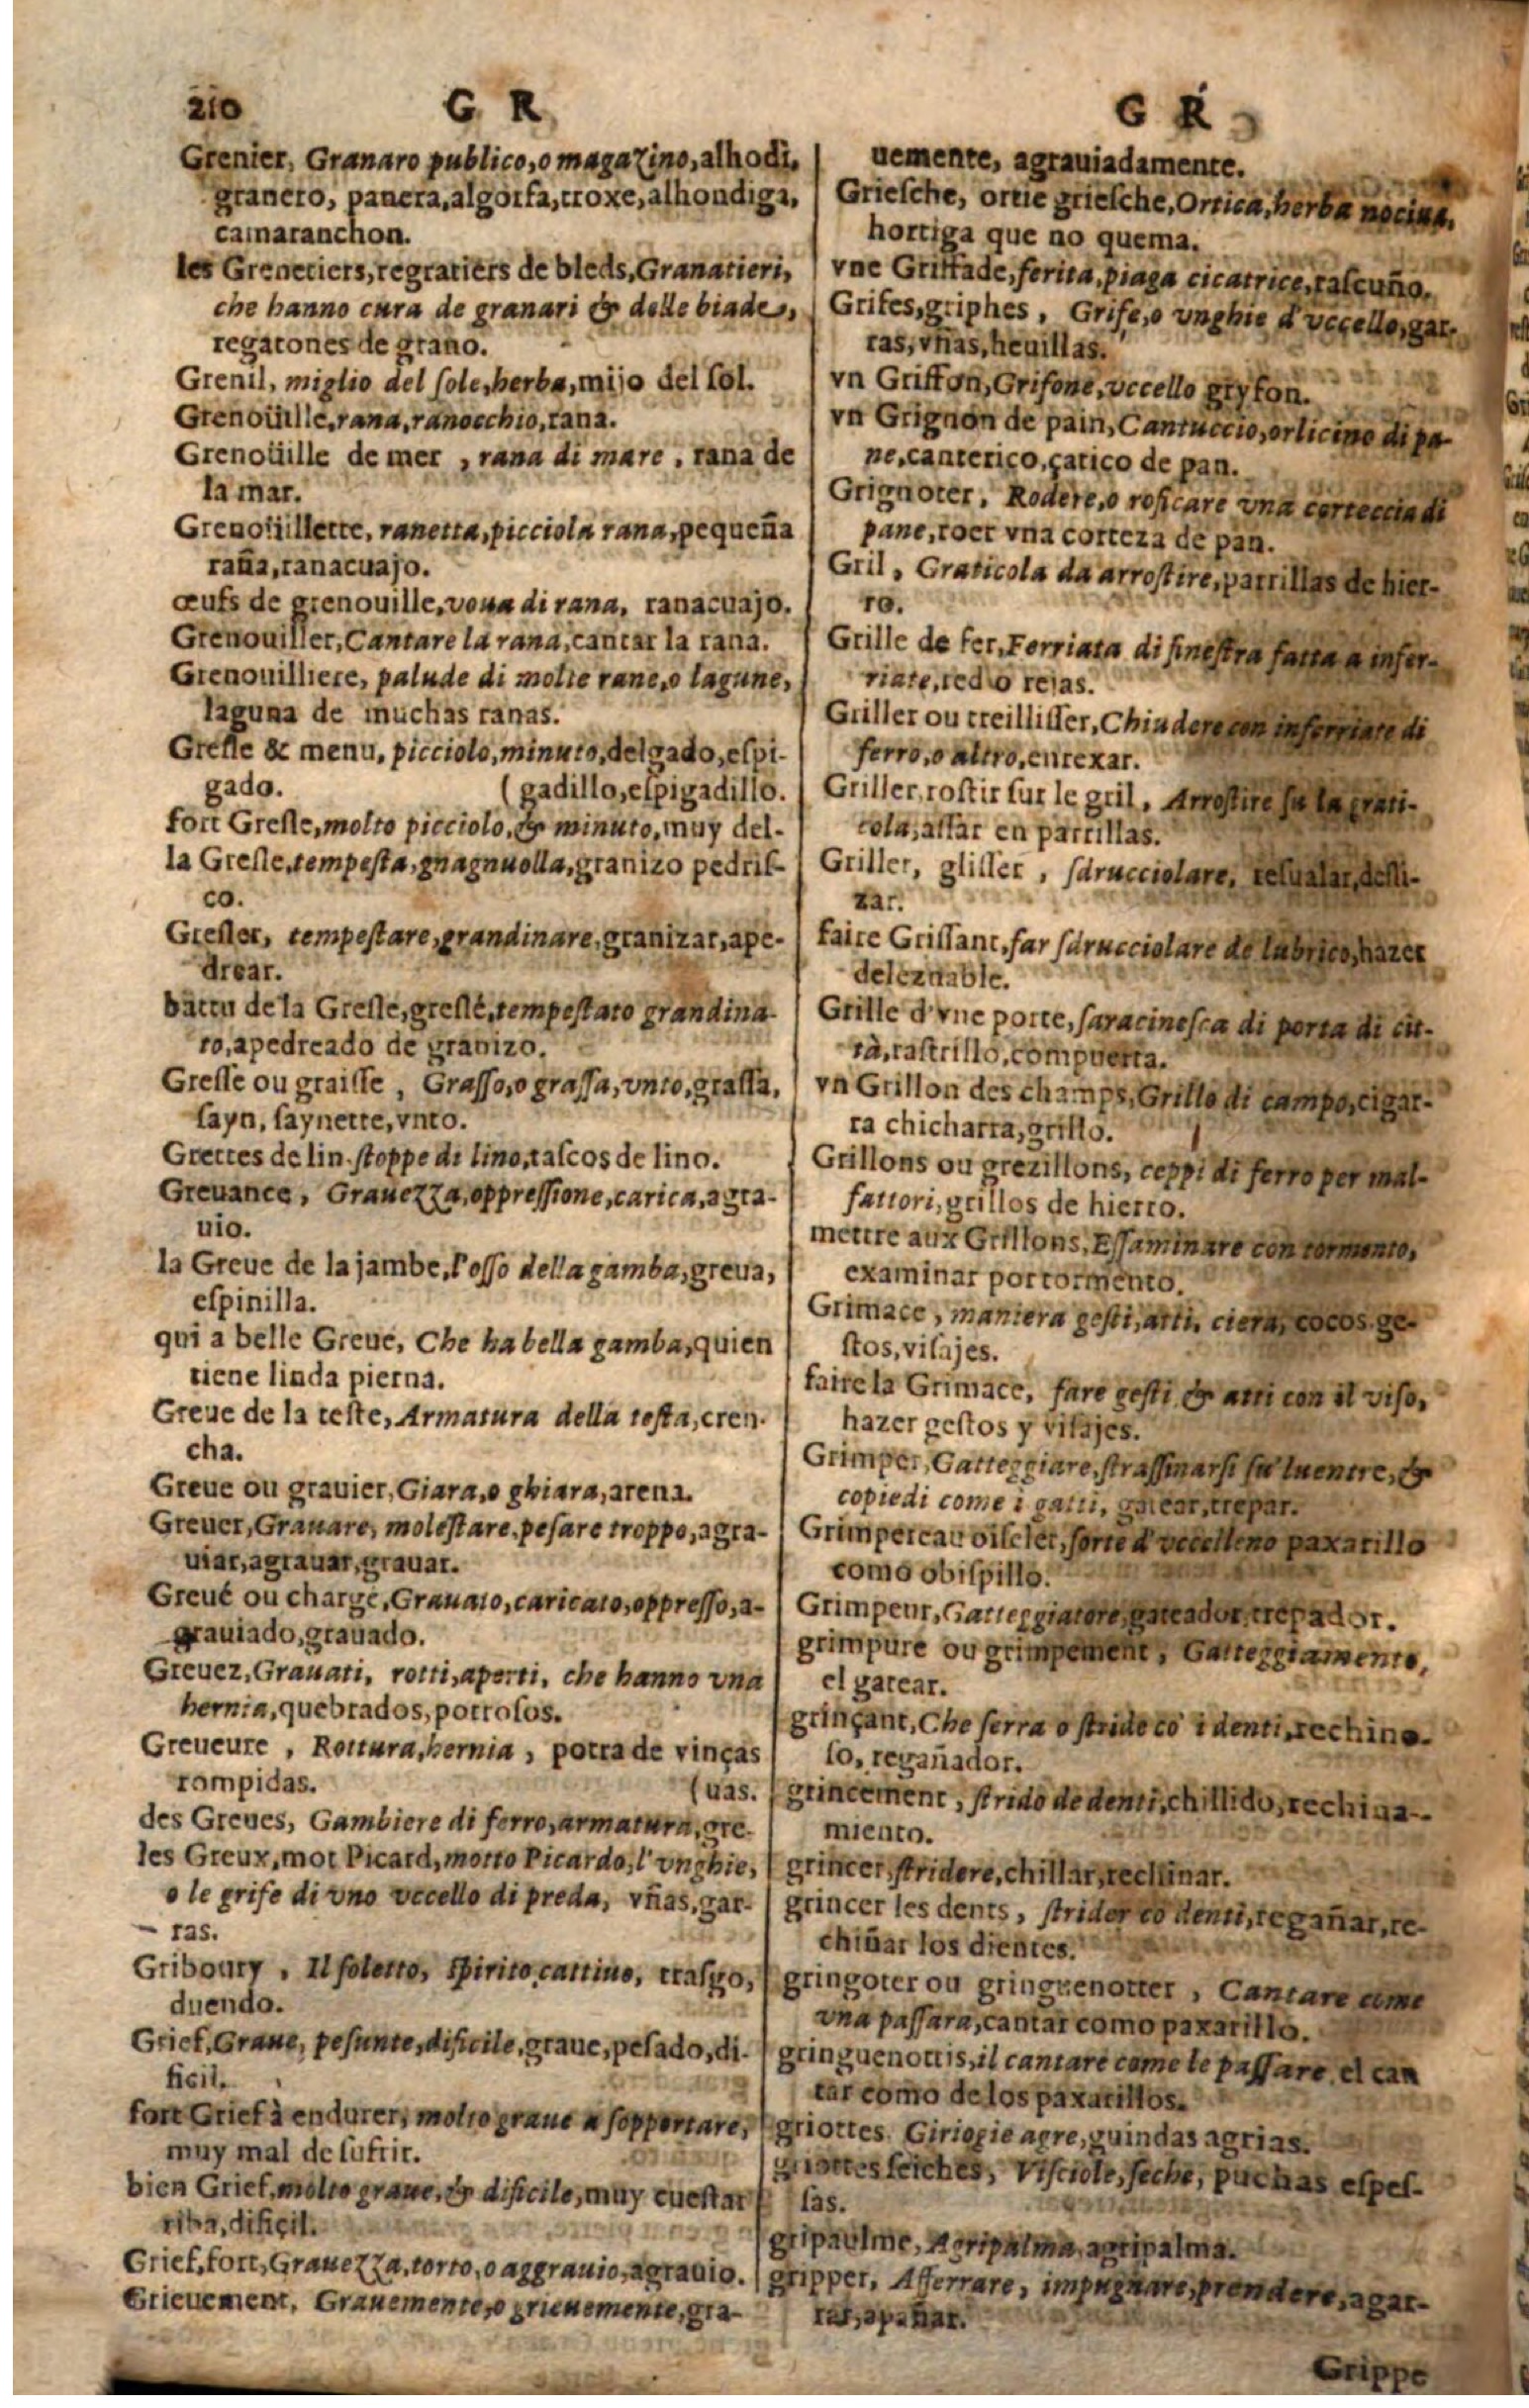 210 G R
Grenier, Granaro publico, o magazino, alhodi,
granero, panera, algorfa, troxe, alhondiga,
camaranchon.
les Grenetiers, regratiers de bleds, Granatieri,
che hanno cura de granari & delle biade,
regatones de grano.
Grenil, miglio del ſole, herba, mijo del ſol.
Grenoüille, rana, ranocchio, rana.
Grenoüille de mer, rana di mare, rana de
la mar.
Grenoüillette, ranetta, picciola rana, pequeña
raña, ranacuajo.
œufs de grenouille, voua di rana, ranacuajo.
Grenouiller, Cantare la rana, cantar la rana.
Grenouilliere, palude di molte rane, o lagune,
laguna de muchas ranas.
Greſle & menu, picciolo, minuto, delgado, eſpi-
gado. (gadillo, eſpigadillo.
fort Greſle, molto picciolo, & minuto, muy del-
la Greſle, tempeſta, gnagnuolla, granizo pedriſ-
co.
Greſler, tempeſtare, grandinare, granizar, ape-
drear.
battu de la Greſle, greſlé, tempeſtato grandina-
to, apedreado de granizo.
Greſſe ou graiſſe, Graſſo, o graſſa, vnto, graſſa,
ſayn, ſaynette, vnto.
Grettes de lin. ſtoppe di lino, taſcos de lino.
Greuance, Grauezza, oppreſſione, carica, agra-
uio.
la Greue de la jambe, l'oſſo della gamba, greua,
eſpinilla.
qui a belle Greue, Che ha bella gamba, quien
tiene linda pierna.
Greue de la teſte, Armatura della teſta, cren-
cha.
Greue ou grauier, Giara, o ghiara, arena.
Greuer, Grauare, moleſtare, peſare troppo, agra-
uiar, agrauar, grauar.
Greué ou chargé, Grauato, caricato, oppreſſo, a-
grauiado, grauado.
Greuez, Grauati, rotti, aperti, che hanno vna
hernia, quebrados, potroſos.
Greueure, Rottura, hernia, potra de vinças
rompidas. (uas.
des Greues, Gambiere di ferro, armatura, gre-
les Greux, mot Picard, motto Picardo, l'vnghie,
o le grife di vno vccello di preda, vñas, gar-
ras.
Griboury, Il foletto, ſpirito cattiuo, traſgo,
duendo.
Grief, Graue, peſunte, dificile, graue, peſado, di-
ficil.
fort Grief à endurer, molto graue a ſopportare,
muy mal de ſufrir.
bien Grief, molto graue, & dificile, muy cueſtar
riba, difiçil.
Grief, fort, Grauezza, torto, o aggrauio, agrauio.
Grieuement, Grauemente, o grieuemente, gra-
G R
uemente, agrauiadamente.
Grieſche, ortie grieſche, Ortica, herba nociua,
hortiga que no quema.
vne Griffade, ferita, piaga cicatrice, raſcuño.
Grifes, griphes, Grife, o vnghie d'vccello, gar-
ras, vñas, heuillas.
vn Griffon, Grifone, vccello gryfon.
vn Grignon de pain, Cantuccio, orlicino di pa-
ne, canterico, çatico de pan.
Grignoter, Rodere, o roſicare vna corteccia di
pane, roer vna corteza de pan.
Gril, Graticola da arroſtire, parrillas de hier-
ro.
Grille de fer, Ferriata di fineſtra fatta a infer-
riate, red o rejas.
Griller ou treilliſſer, Chiudere con inferriate di
ferro, o altro, enrexar.
Griller, roſtir ſur le gril, Arroſtire ſu la grati-
cola, aſſar en parrillas.
Griller, gliſſer, ſdrucciolare, reſualar, deſli-
zar.
faire Griſſant, far ſdrucciolare de lubrico, hazer
deleznable.
Grille d'vne porte, ſaracineſca di porta di cit-
tà, raſtrillo, compuerta.
vn Grillon des champs, Grillo di campo, cigar-
ra chicharra, grillo.
Grillons ou grezillons, ceppi di ferro per mal-
fattori, grillos de hierro.
mettre aux Grillons, Eſſaminare con tormento,
examinar por tormento.
Grimace, maniera geſti, atti, ciera, cocos. ge-
ſtos, viſajes.
faire la Grimace, fare geſti & atti con il viſo,
hazer geſtos y viſajes.
Grimper, Gatteggiare, ſtraſſinarſi ſu'l uentre, &
co piedi come i gatti, gatear, trepar.
Grimpereau oiſelet, ſorte d'vccelleno paxarillo
como obiſpillo.
Grimpeur, Gatteggiatore, gateador, trepador.
grimpure ou grimpement, Gatteggiamento,
el gatear.
grinçant, Che ſerra o ſtride co i denti, rechino-
ſo, regañador.
grincement, ſtrido de denti, chillido, rechina-
miento.
grincer, ſtridere, chillar, rechinar.
grincer les dents, ſtrider co denti, regañar, re-
chiñar los dientes.
gringoter ou gringuenotter, Cantare come
vna paſſara, cantar como paxarillo.
gringuenottis, il cantare come le paſſare, el can
tar como de los paxarillos.
griottes. Giriogie agre, guindas agrias.
griottes ſeiches, Viſciole, ſeche, puchas eſpeſ-
ſas.
gripaulme, Agripalma, agripalma.
gripper, Afferrare, impugnare, prendere, agar-
rar, apañar.
Grippe